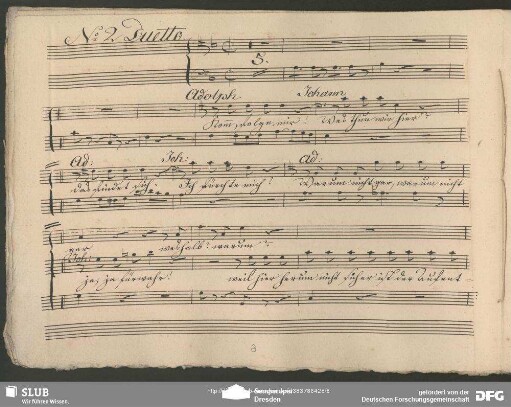 No 2. Duetto
5.
Adolph. Johann
Komm, folge mir! Was thun wir hier?
Ad: Joh: Ad:
das findet sich. Ich fürchte mich! Warum nicht gar, warum nicht
gar weshalb? warum?
Joh:
ja, ja fürwahr! weil hier herum nicht sicher ist der Aufent
SLUB
Wir führen Wissen.
Dresden
gefördert von der
Deutschen Forschungsgemeinschaft
DFG